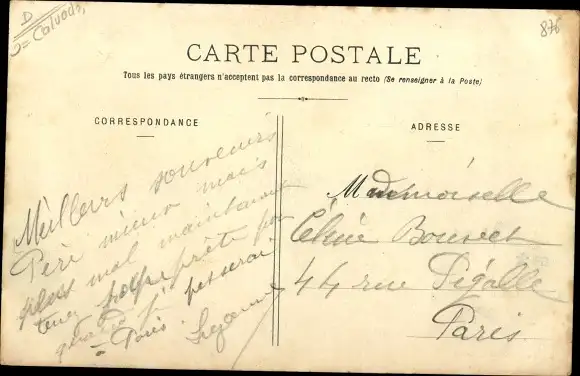 D
= Calvados
876
CARTE POSTALE
Tous les pays étrangers n'acceptent pas la correspondance au recto (Se renseigner à la Poste)
CORRESPONDANCE
Meilleurs souvenirs
Père mieux mais
plus mal maintenant
tenez prête pour
quand je passerai
à Paris
ADRESSE
Mademoiselle
Céline Bouvet
44 rue Pigalle
Paris